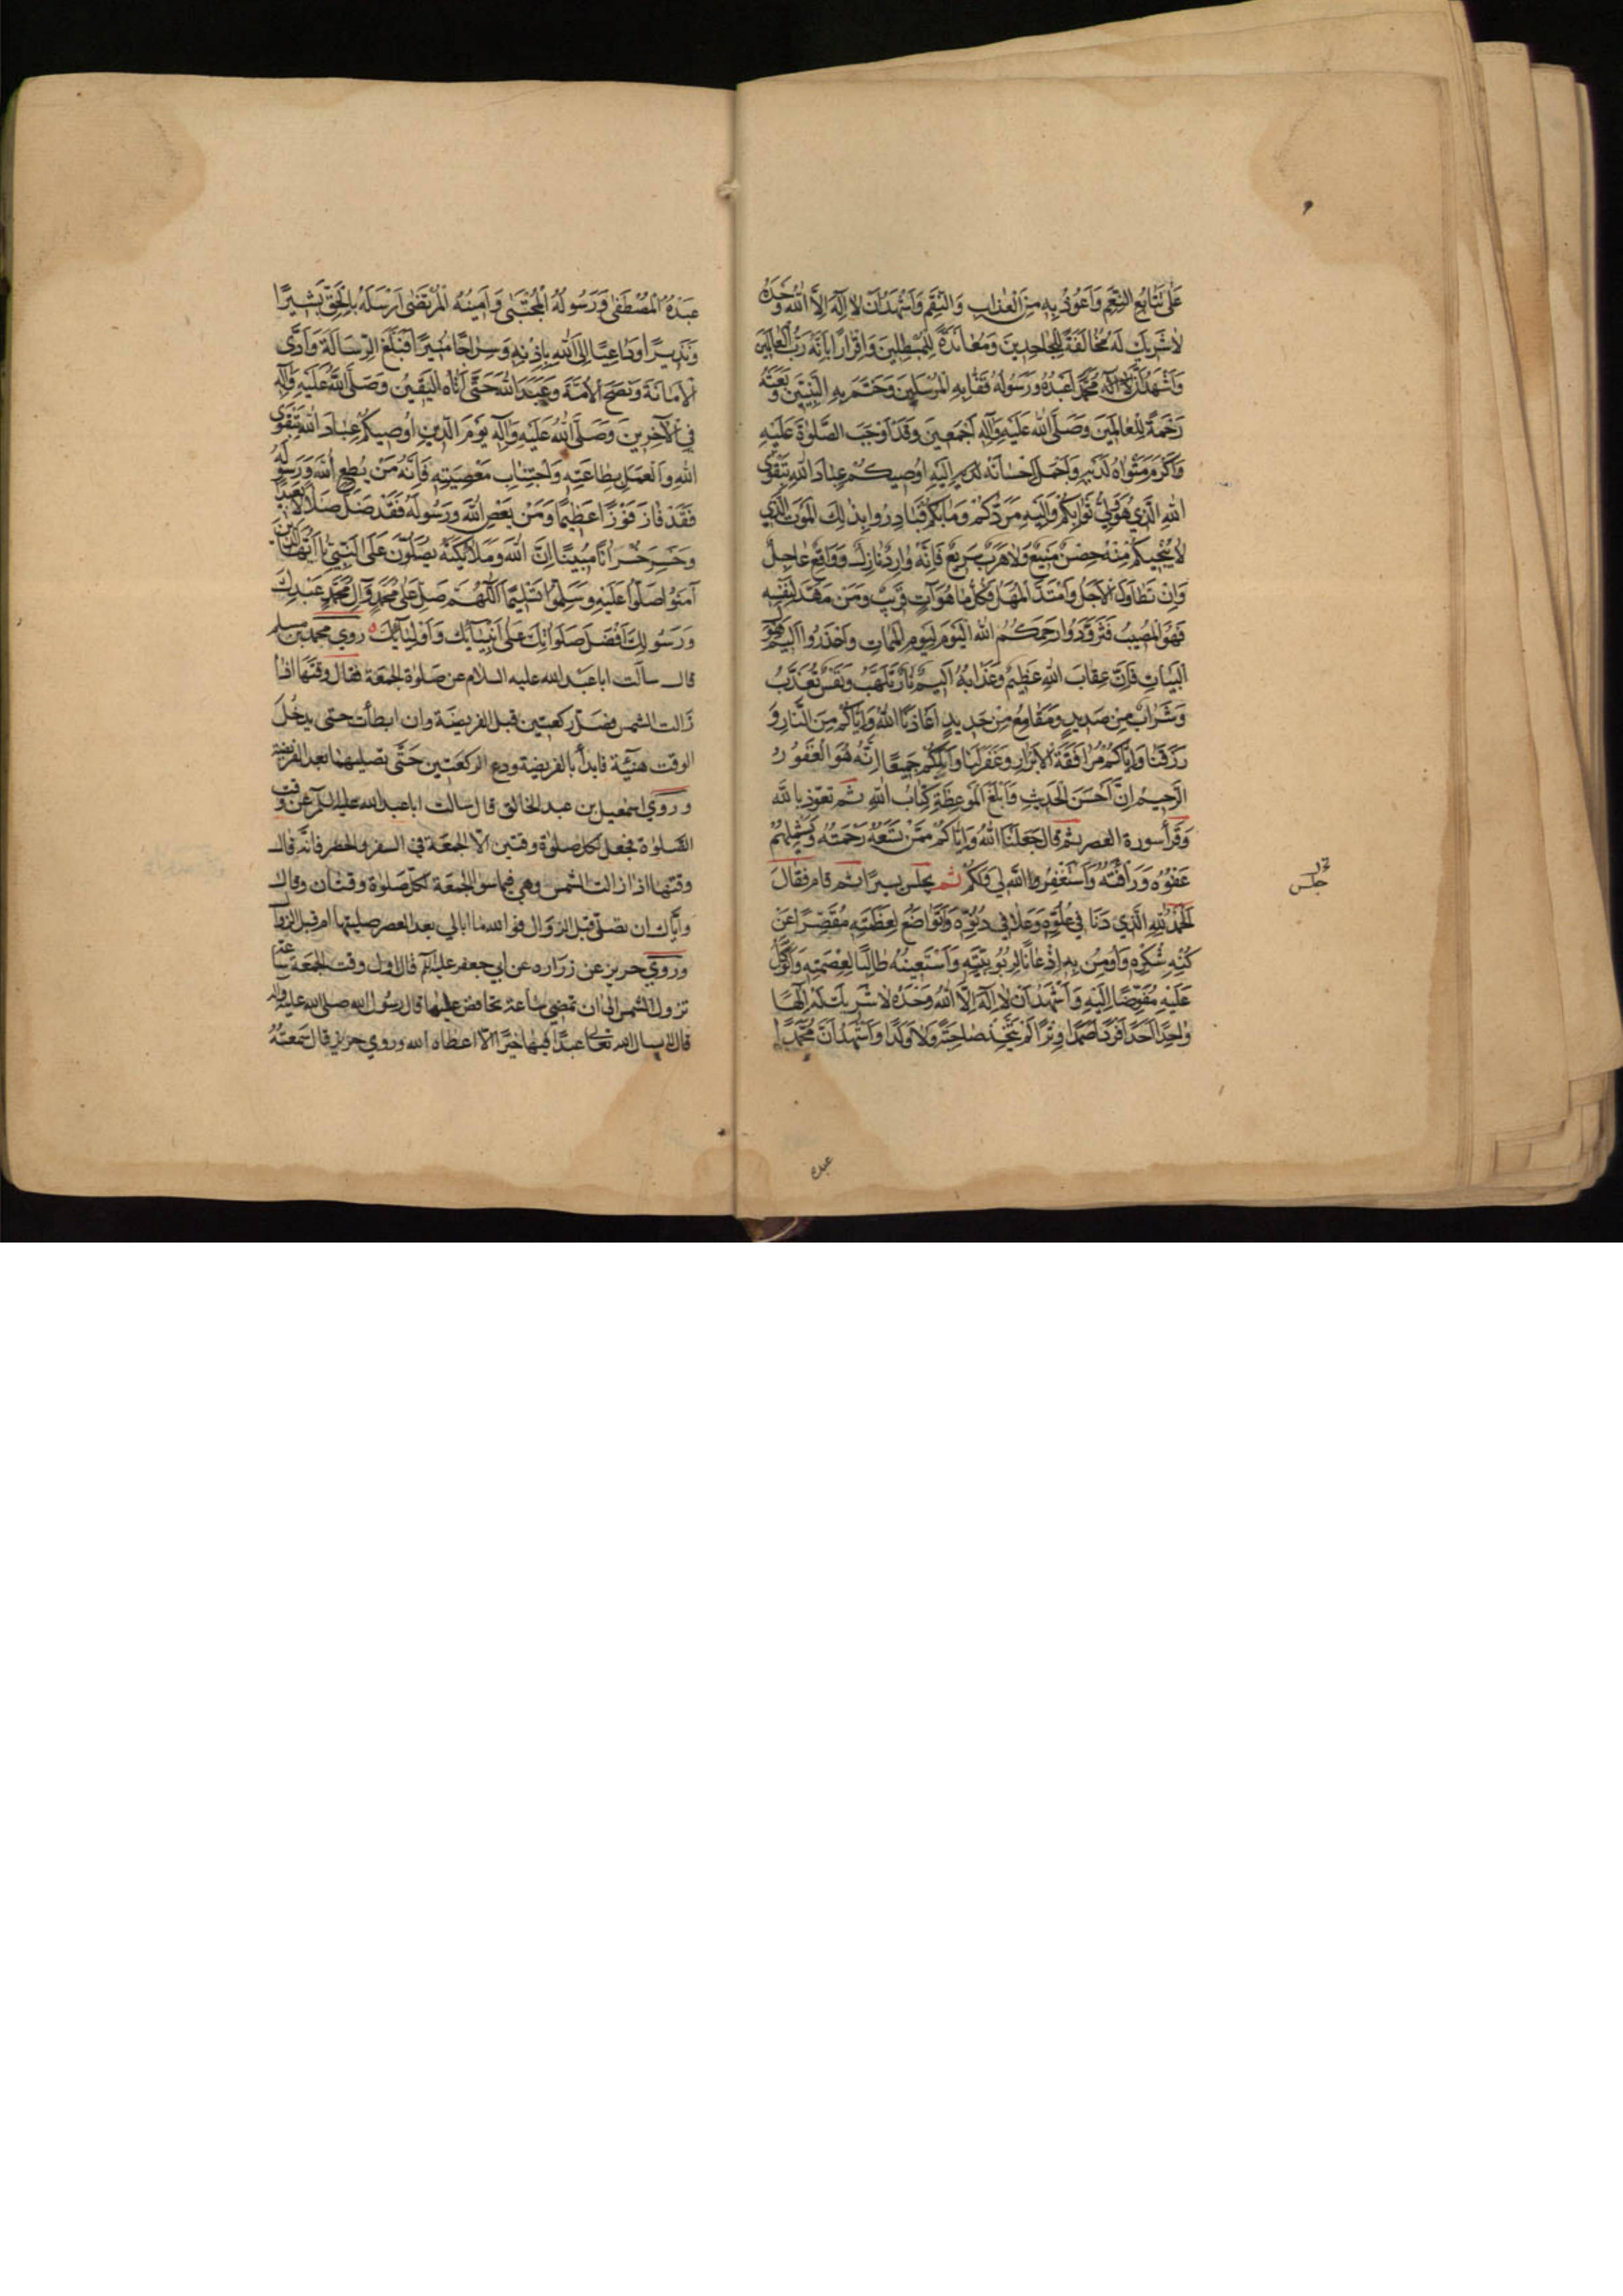 عَلَى تَتَابُعِ النِّعَمِ وَاَعُوذُ بِهِ مِنَ الْعَذَابِ وَالنِّقَمِ وَاَشْهَدُ اَنْ لَا اِلَهَ اِلَّا اللهُ وَحْدَهُ
لَا شَرِيكَ لَهُ مُخَالَفَةً لِلْجَاحِدِينَ وَمُعَانَدَةً لِلْمُبْطِلِينَ وَاِقْرَارًا بِاَنَّهُ رَبُّ الْعَالَمِينَ
وَاَشْهَدُ اَنَّ مُحَمَّدًا عَبْدُهُ وَرَسُولُهُ قَفَّا بِهِ الْمُرْسَلِينَ وَخَتَمَ بِهِ النَّبِيِّينَ وَبَعَثَهُ
رَحْمَةً لِلْعَالَمِينَ وَصَلَّى اللهُ عَلَيْهِ وَآلِهِ اَجْمَعِينَ وَقَدْ اَوْجَبَ الصَّلٰوةَ عَلَيْهِ
وَاَكْرَمَ مَثْوَاهُ لَدَيْهِ وَاَجْمَلَ اِحْسَانَهُ اِلَيْهِ اُوصِيكُمْ عِبَادَ اللهِ بِتَقْوَى
اللهِ الَّذِي هُوَ وَلِيُّ ثَوَابِكُمْ وَاِلَيْهِ مَرَدُّكُمْ وَمَآبُكُمْ فَبَادِرُوا بِذٰلِكَ الْمَوْتَ الَّذِي
لَا يُنْجِيكُمْ مِنْهُ حِصْنٌ مَنِيعٌ وَلَا هَرَبٌ سَرِيعٌ فَاِنَّهُ وَارِدٌ نَازِلٌ وَوَاقِعٌ عَاجِلٌ
وَاِنْ تَطَاوَلَ الْاَجَلُ وَامْتَدَّ الْمَهَلُ فَكُلُّ مَا هُوَ آتٍ قَرِيبٌ وَمَنْ مَهَّدَ لِنَفْسِهِ
فَهُوَ الْمُصِيبُ فَتَزَوَّدُوا رَحِمَكُمُ اللهُ الْيَوْمَ لِيَوْمِ الْمَمَاتِ وَاحْذَرُوا اَلِيمَ هَوْلِ
الْبَيَاتِ فَاِنَّ عِقَابَ اللهِ عَظِيمٌ وَعَذَابَهُ اَلِيمٌ نَارٌ تَلَهَّبُ وَنَفْسٌ تُعَذَّبُ
وَشَرَابٌ مِنْ صَدِيدٍ وَمَقَامِعُ مِنْ حَدِيدٍ اَعَاذَنَا اللهُ وَاِيَّاكُمْ مِنَ النَّارِ وَ
رَزَقَنَا وَاِيَّاكُمْ مُرَافَقَةَ الْاَبْرَارِ وَغَفَرَ لَنَا وَلَكُمْ جَمِيعًا اِنَّهُ هُوَ الْغَفُورُ
الرَّحِيمُ اِنَّ اَحْسَنَ الْحَدِيثِ وَاَبْلَغَ الْمَوْعِظَةِ كِتَابُ اللهِ ثم تعوّذ بالله
وَقَرَأ سورة العصر ثم قال جَعَلَنَا اللهُ وَاِيَّاكُمْ مِمَّنْ تَسَعُهُ رَحْمَتُهُ وَيَشْمَلُهُمْ
عَفْوُهُ وَرَأْفَتُهُ وَاَسْتَغْفِرُ اللهَ لِي وَلَكُمْ ثم يجلس يسيرًا ثم قام فقالَ
اَلْحَمْدُ لِلهِ الَّذِي دَنَا فِي عُلُوِّهِ وَعَلَا فِي دُنُوِّهِ وَتَوَاضَعَ لِعَظَمَتِهِ مُقَصِّرًا عَنْ
كُنْهِ شُكْرِهِ وَاُومِنُ بِهِ اِذْعَانًا لِرُبُوبِيَّتِهِ وَاَسْتَعِينُهُ طَالِبًا لِعِصْمَتِهِ وَاَتَوَكَّلُ
عَلَيْهِ مُفَوِّضًا اِلَيْهِ وَاَشْهَدُ اَنْ لَا اِلَهَ اِلَّا اللهُ وَحْدَهُ لَا شَرِيكَ لَهُ اِلٰهًا
وَاحِدًا اَحَدًا فَرْدًا صَمَدًا وِتْرًا لَمْ يَتَّخِذْ صَاحِبَةً وَلَا وَلَدًا وَاَشْهَدُ اَنَّ مُحَمَّدًا
جلس
عبده
عَبْدُهُ الْمُصْطَفَى وَرَسُولُهُ الْمُجْتَبَى وَاَمِينُهُ الْمُرْتَضَى اَرْسَلَهُ بِالْحَقِّ بَشِيرًا
وَنَذِيرًا وَدَاعِيًا اِلَى اللهِ بِاِذْنِهِ وَسِرَاجًا مُنِيرًا فَبَلَّغَ الرِّسَالَةَ وَاَدَّى
الْاَمَانَةَ وَنَصَحَ الْاُمَّةَ وَعَبَدَ اللهَ حَتَّى اَتَاهُ الْيَقِينُ وَصَلَّى اللهُ عَلَيْهِ وَآلِهِ
فِي الْآخِرِينَ وَصَلَّى اللهُ عَلَيْهِ وَآلِهِ يَوْمَ الدِّينِ اُوصِيكُمْ عِبَادَ اللهِ بِتَقْوَى
اللهِ وَالْعَمَلِ بِطَاعَتِهِ وَاجْتِنَابِ مَعْصِيَتِهِ فَاِنَّهُ مَنْ يُطِعِ اللهَ وَرَسُولَهُ
فَقَدْ فَازَ فَوْزًا عَظِيمًا وَمَنْ يَعْصِ اللهَ وَرَسُولَهُ فَقَدْ ضَلَّ ضَلَالًا بَعِيدًا
وَخَسِرَ خُسْرَانًا مُبِينًا اِنَّ اللهَ وَمَلَائِكَتَهُ يُصَلُّونَ عَلَى النَّبِيِّ يَا اَيُّهَا الَّذِينَ
آمَنُوا صَلُّوا عَلَيْهِ وَسَلِّمُوا تَسْلِيمًا اَللّٰهُمَّ صَلِّ عَلَى مُحَمَّدٍ وَآلِ مُحَمَّدٍ عَبْدِكَ
وَرَسُولِكَ اَفْضَلَ صَلَوَاتِكَ عَلَى اَنْبِيَائِكَ وَاَوْلِيَائِكَ روى محمد بن مسلم
قال سألت ابا عبد الله عليه السلام عن صلوة الجمعة فقال وقتها اذا
زالت الشمس فصلّ ركعتين قبل الفريضة وان ابطأت حتى يدخل
الوقت هنيئة فابدأ بالفريضة ودع الركعتين حتّى تصليهما بعد الفريضة
وروى اسمعيل بن عبد الخالق قال سالت ابا عبد الله عليه السلم عن وقت
الصّلوة فجعل لكل صلوة وقتين الا الجمعة فى السفر والحضر فانّه قال
وقتها اذا زالت الشمس وهي فيما سوى الجمعة لكل صلوة وقتان وقال
وايّاك ان تصلّى قبل الزوال فوالله ما ابالي بعد العصر صليتها ام قبل الزوال
وروى حريز عن زراره عن ابي جعفر عليه السلم قال اول وقت الجمعة ساعة
تزول الشمس الى ان تمضي ساعة تحافظ عليها قال رسول الله صلى الله عليه واله
قال لا يسال الله تعالى عبدٌ فيها خيرًا الا اعطاه الله وروى حريز قال سمعته